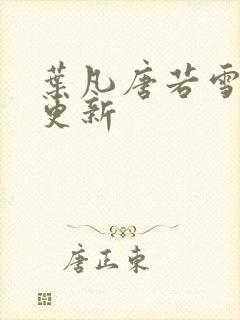 葉凡唐若雪
更新
唐正東